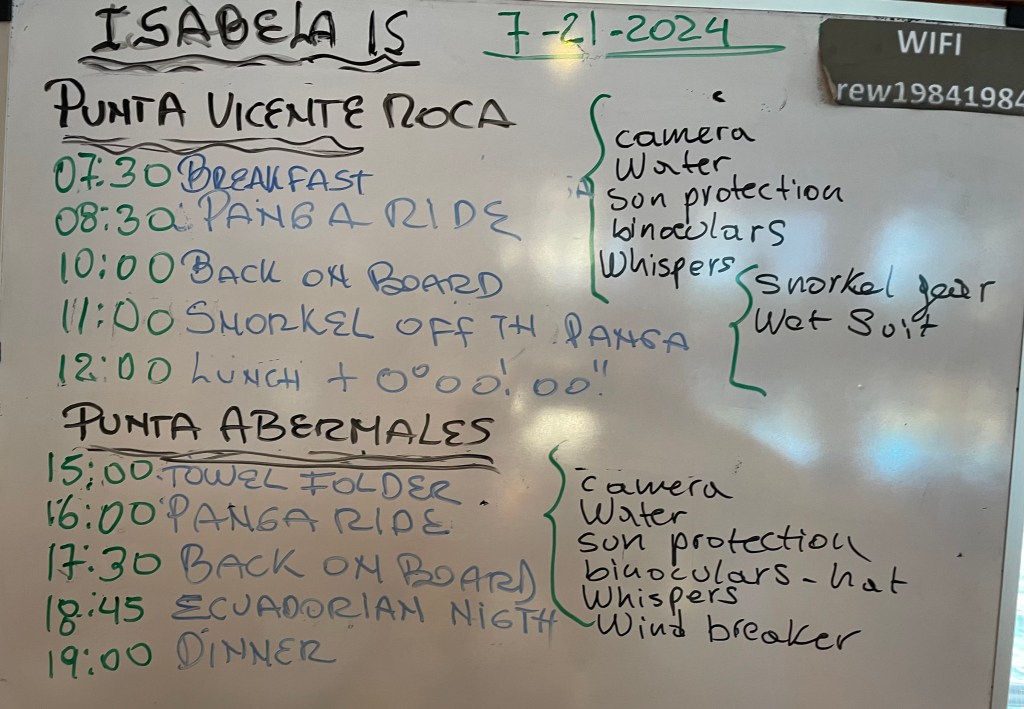 ISABELA IS
7-21-2024
WIFI
rew19841984
PUNTA VICENTE ROCA
07:30 BREAKFAST
08:30 PANGA RIDE
10:00 BACK ON BOARD
11:00 SNORKEL OFF TH PANGA
12:00 LUNCH + 0°00'.00"
camera
Water
son protection
binoculars
Whispers
Snorkel gear
Wet Suit
PUNTA ABERMALES
15:00 TOWEL FOLDER
16:00 PANGA RIDE
17:30 BACK ON BOARD
18:45 ECUADORIAN NIGTH
19:00 DINNER
camera
Water
sun protection
binoculars - hat
Whispers
Wind breaker